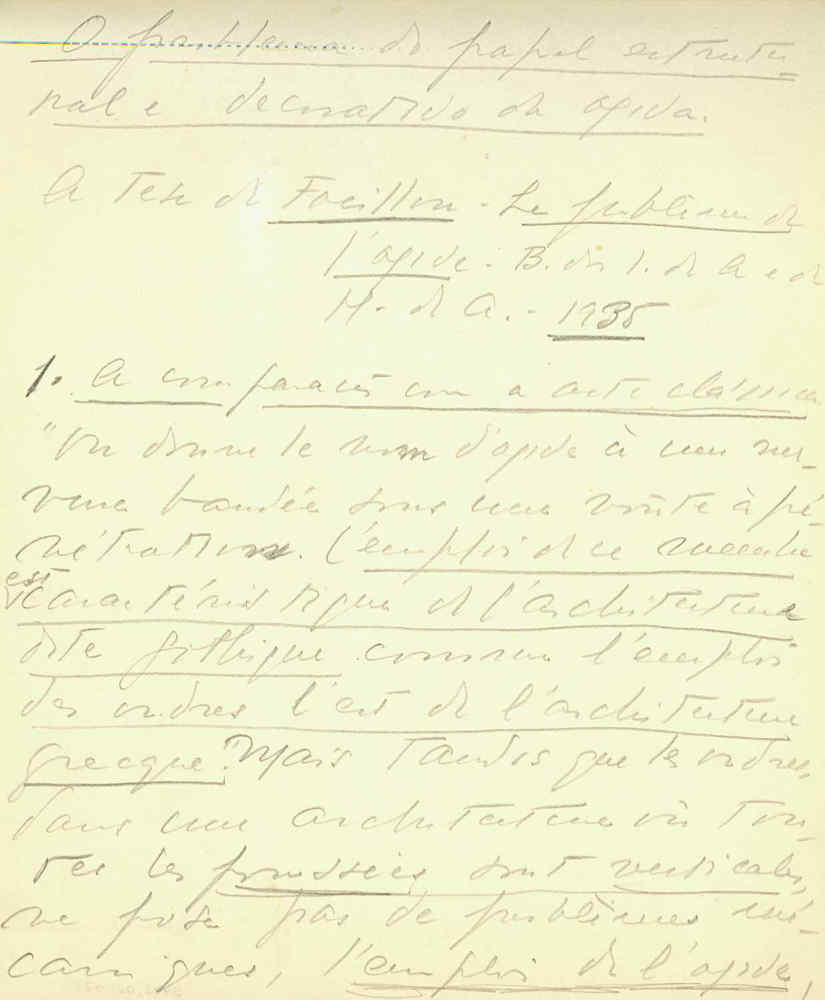 O problema do papel estrutu-
ral e decorativo da ogiva.
A tese de Focillon - Le problème de
l'ogive - B. de l'I. de A e de
H. de A. - 1935
1. A comparação com a arte clássica
"On donne le nom d'ogive à une ner-
vure bandée sous une voûte à pé-
nétration. L'emploi de ce membre
est caractéristique de l'architecture
dite gothique comme l'emploi
des ordres l'est de l'architecture
grecque". Mais tandis que les ordres,
dans une architecture où tou-
tes les poussées sont verticales,
ne pose pas de problèmes mé-
caniques, l'emploi de l'ogive,